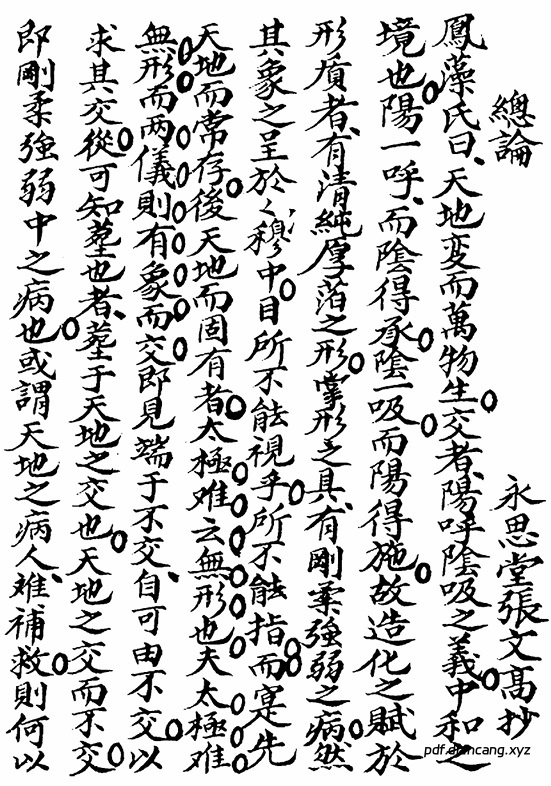 總論
永思堂張文高抄
鳳藻氏曰天地変而萬物生交者陽呼陰吸之義中和之
境也陽一呼而陰得承陰一吸而陽得施故造化之賦於
形質者有清純厚薄之形掌形之具有剛柔強弱之病然
其象之呈於於穆中目所不能視手所不能指而寔先
天地而常存後天地而固有者太極难云無形也夫太極难
無形而两儀則有象而交即見端于不交自可由不交以
求其交從可知墓也者墓于天地之交也天地之交而不交
即剛柔強弱中之病也或謂天地之病人难補救則何以
pdf.dancang.xyz